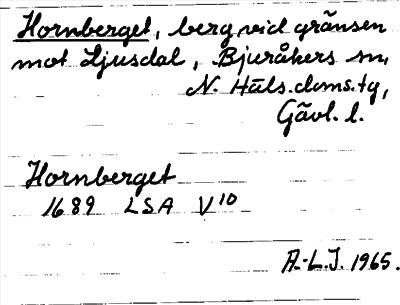 Hornberget, berg vid gränsen
mot Ljusdal, Bjuråkers sn,
N. Häls. doms. tg,
Gävl. l.
Hornberget
1689 LSA V10
A.-L.J. 1965.